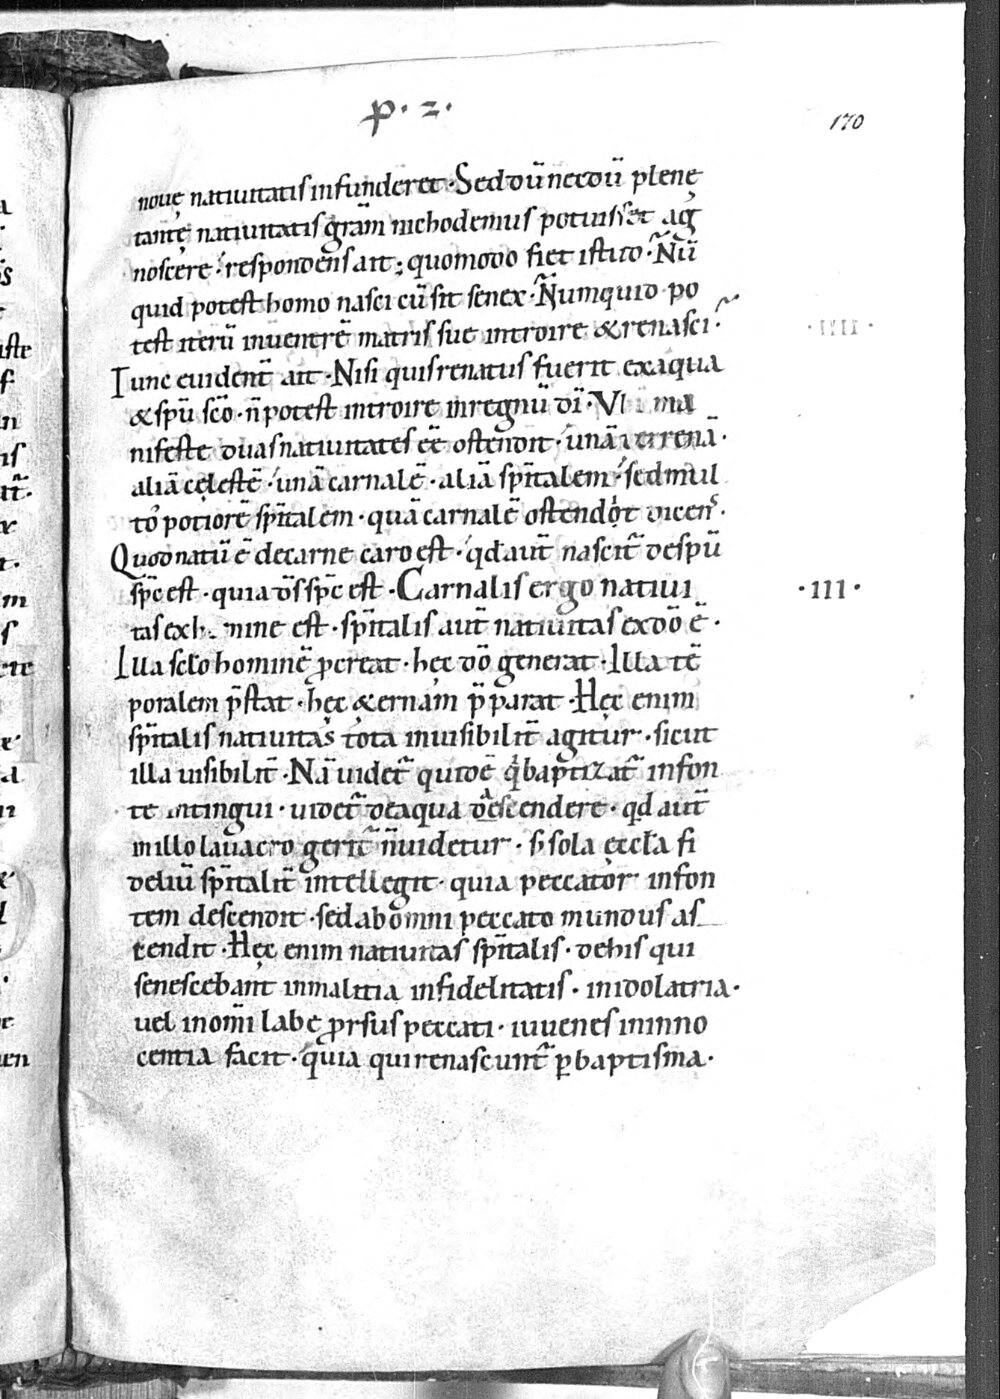 ꝓ · z ·
170
nouę natiuitatis infunderet · Sed dū necdū plenę
tantę natiuitatis gr̄am nichodemus potuisset ag
noscere · respondens ait ; quomodo fiet istud · Nū
quid potest homo nasci cū sit senex · Numquid po
test iterū inuentrē matris sue introire & renasci ·
· IIII ·
Tunc euident̄ ait · Nisi quis renatus fuerit exaqua
& sp̄u sc̄o · n̄ potest introire inregnū dī · ma
nifeste duas natiuitates eē ostendit · unā terrenā ·
aliā cęlestē · unā carnalē · aliā sp̄italem · sed mul
to potiorē sp̄italem · quā carnalē ostendit dicens ·
Quod natū ē decarne caro est · qd aut̄ nascit̄ despū
sp̄c est · quia d̄s sp̄c est · Carnalis ergo natiui
· III ·
tas ex mine est · sp̄italis aut̄ natiuitas exdō ē ·
Illa hominē ꝓcreat · hęc dō generat · Illa tē
poralem p̄stat · hęc ę&ernam p̄parat · Hęc enim
sp̄italis natiuitas tota inuisibilit̄ agitur · sicut
illa uisibilit̄ · Nā uidet̄ quidē q baptizat̄ infon
te intingui · uidet̄ deaqua descendere · qd aut̄
inillo lauacro gerit̄ n̄ uidetur · s sola ęccl̄a fi
deliū sp̄italit̄ intellegit · quia peccator infon
tem descendit · sed abomni peccato mundus as
cendit · Hęc enim natiuitas sp̄italis · dehis qui
senescebant inmalitia infidelitatis · inidolatria ·
uel inom̄i labe prorsus peccati · iuuenes ininno
centia facit · quia qui renascunt̄ ꝑ baptisma ·